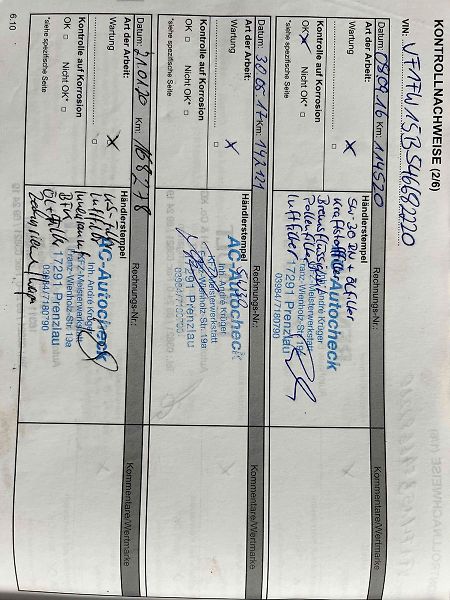 KONTROLLNACHWEISE (2/6)
VIN: VF1FW15B546682220
Datum: 08.09.16 Km: 114520
Art der Arbeit:
Wartung X
Kontrolle auf Korrosion
OK X Nicht OK*
*siehe spezifische Seite
Rechnungs-Nr.:
Händlerstempel
5W-30 RN + Ölfilter
Kraftstofffilter
Bremsflüssigkeit
Pollenfilter
Luftfilter
AC-Autocheck
Inh. André Krüger
KFZ-Meisterwerkstatt
Franz-Wienholz-Str. 19a
17291 Prenzlau
03984/7180790
Kommentare/Wertmarke
Datum: 30.05.17 Km: 142121
Art der Arbeit:
Wartung X
Kontrolle auf Korrosion
OK Nicht OK*
*siehe spezifische Seite
Rechnungs-Nr.:
Händlerstempel
5W30
AC-Autocheck
Inh. André Krüger
KFZ-Meisterwerkstatt
Franz-Wienholz-Str. 19a
17291 Prenzlau
03984/7180790
Kommentare/Wertmarke
Datum: Km: 168278
Art der Arbeit:
Wartung X
Kontrolle auf Korrosion
OK Nicht OK*
*siehe spezifische Seite
Rechnungs-Nr.:
Händlerstempel
Luftfilter
Innenraum
Ölfilter
AC-Autocheck
Inh. André Krüger
KFZ-Meisterwerkstatt
Franz-Wienholz-Str. 19a
17291 Prenzlau
03984/7180790
Kommentare/Wertmarke
6.10